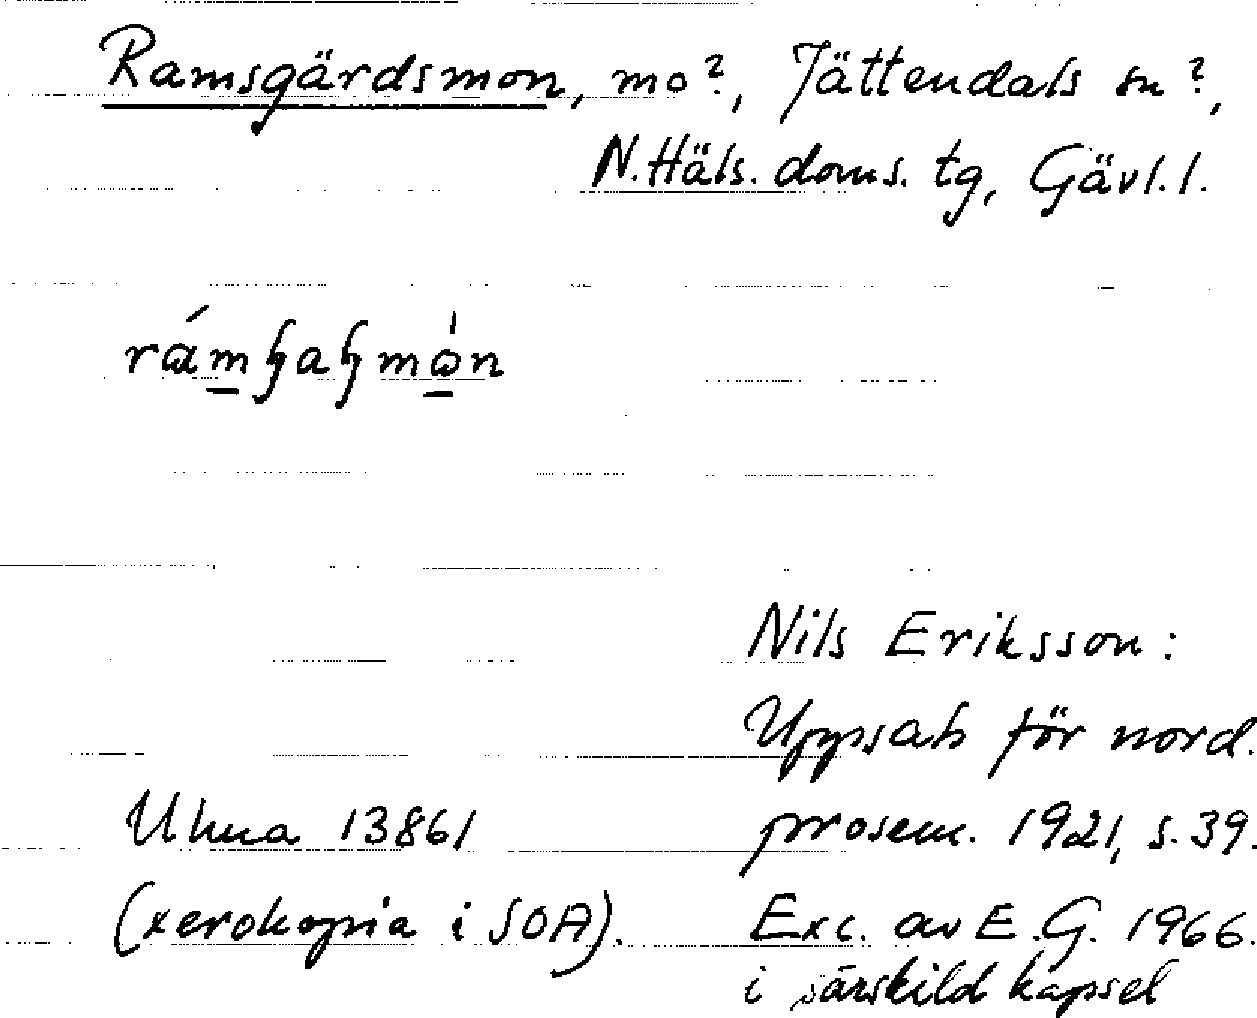 Ramsgärdsmon, mo?, Jättendals sn?,
N. Häls. doms. tg, Gävl. l.
Nils Eriksson:
Uppsats för nord.
Uluna 13861
prosem. 1921, s. 39.
(xerokopia i SOA).
Exc. av E.G. 1966.
i särskild kapsel